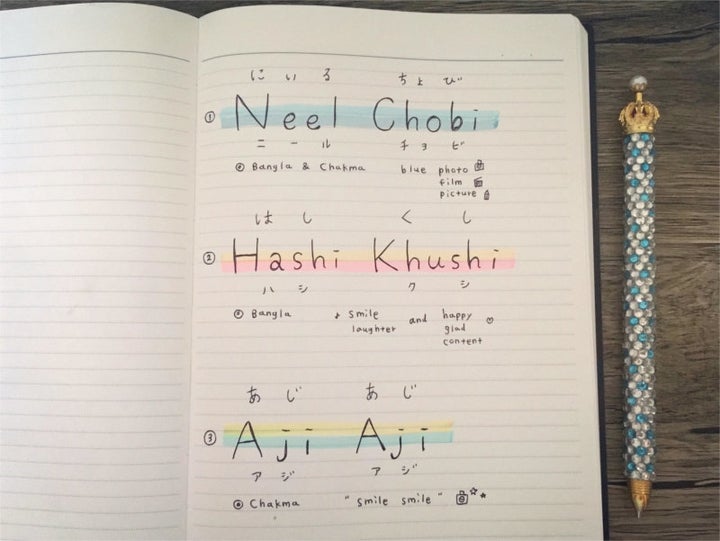 にいる ちょび
① Neel Chobi
ニール チョビ
Bangla & Chakma blue photo
film
picture
はし くし
② Hashi Khushi
ハシ クシ
Bangla ♪ smile and happy ♡
laughter glad
content
あじ あじ
③ Aji Aji
アジ アジ
Chakma "smile smile"